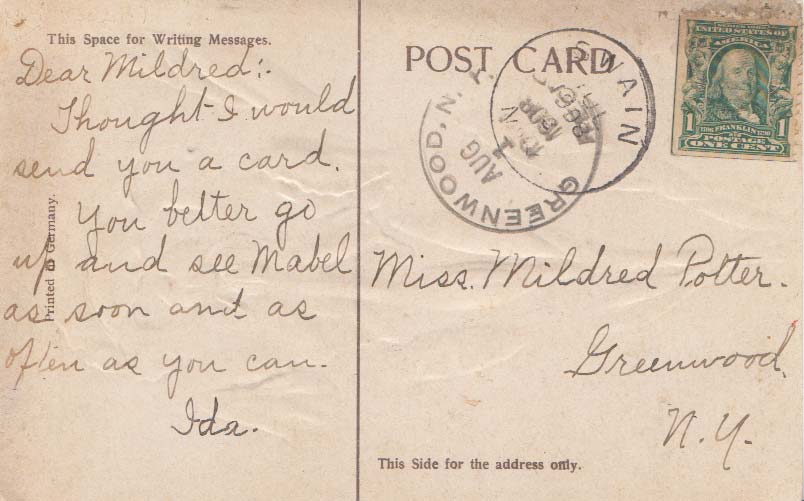 This Space for Writing Messages.
Dear Mildred:-
Thought I would
send you a card.
You better go
up and see Mabel
as soon and as
often as you can.
Ida.
Printed in Germany.
POST CARD
SWAIN
GREENWOOD, N.Y.
AUG
1
UNITED STATES OF
AMERICA
1 FRANKLIN 1
POSTAGE
ONE CENT
Miss. Mildred Potter.
Greenwood,
N.Y.
This Side for the address only.